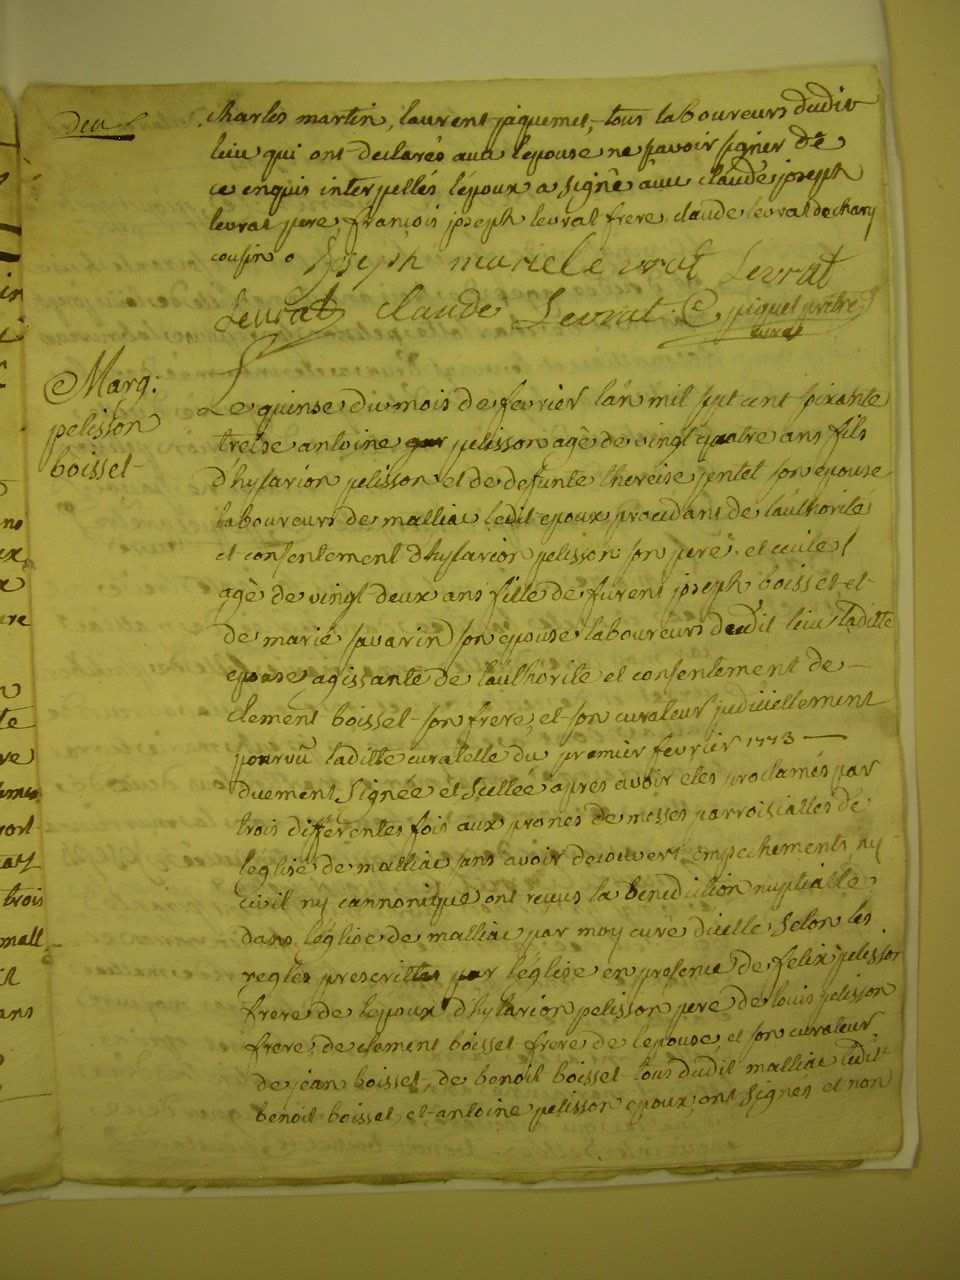 deu
charles martin, laurent jaquemet, tous laboureurs dudit
lieu qui ont declarés ava lepouse ne savoir signer de
ce enquis interpellés l'epoux a signé avec claude joseph
levrat pere, françois joseph levrat frere, claude levrat de chary
cousin
joseph marie levrat Levrat
Levrat claude Levrat piquet prêtre
curé
Marg:
pelisson
boisset
Le quinse du mois de fevrier l'an mil sept cent soixante
treise antoine pelisson agè de vingt quatre ans fils
d'hylarion pelisson et de defunte thereise jentet son epouse
laboureurs de malliac ledit epoux procedans de l'authorité
et consentement d'hylarion pelisson son pere, et
agè de vingt deux ans fille de furent joseph boisset et
de marie savarin son epouse laboureurs dudit lieu laditte
epouse agissante de l'authorite et consentement de
clement boisset son frere, et son curateur judiciellement
pourvu laditte curatelle du premier fevrier 1773
duement signée et scellée apres avoir etes proclamés par
trois differentes fois aux prones de messes parroissialles de
leglise de malliac sans avoir decouvert empechements ny
civil ny cannonique ont reçus la benediction nuptialle
dans l'église de malliac par moy curé dicelle selon les
regles prescrittes par l'église en presence de felix pelisson
frere de lepoux d'hylarion pelisson pere de louis pelisson
frere, de clement boisset frere de lepouse, et son curateur
de jean boisset, de benoit boisset tous dudit malliac ledit
benoit boisset, et antoine pelisson epoux, ont signés et non